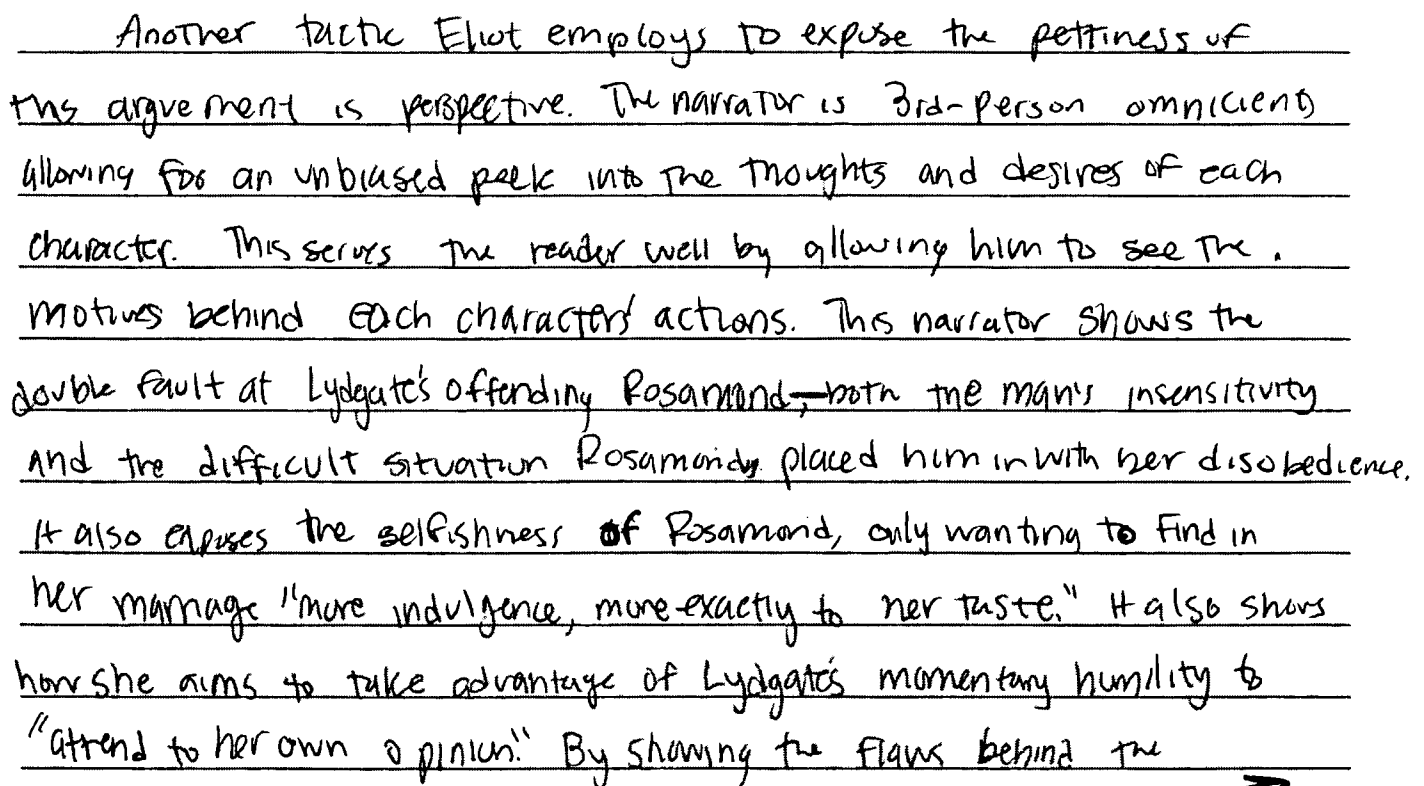 Another tactic Eliot employs to expose the pettiness of
this arguement is perspective. The narrator is 3rd-person omnicient,
allowing for an unbiased peek into the thoughts and desires of each
character. This serves the reader well by allowing him to see the
motives behind each characters' actions. This narrator shows the
double fault at Lydgate's offending Rosamond, both the man's insensitivity
and the difficult situation Rosamond placed him in with her disobedience.
It also exposes the selfishness of Rosamond, only wanting to find in
her marriage "more indulgence, more exactly to her taste." It also shows
how she aims to take advantage of Lydgate's momentary humility to
"attend to her own opinion." By showing the flaws behind the